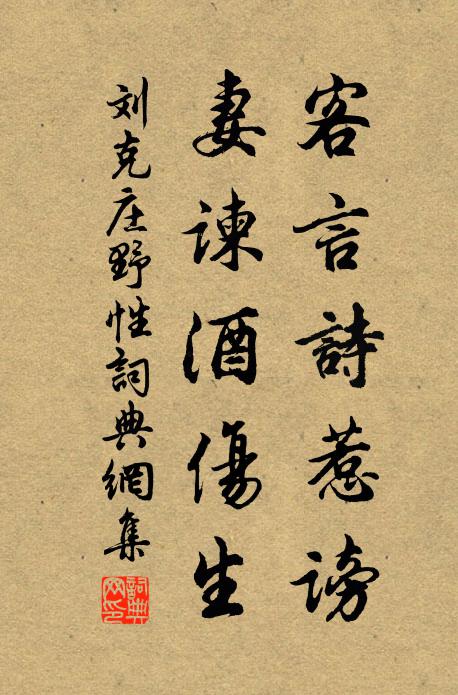 客言詩惹謗
妻諫酒傷生
刘克庄野性詞典網集
詞典
网印